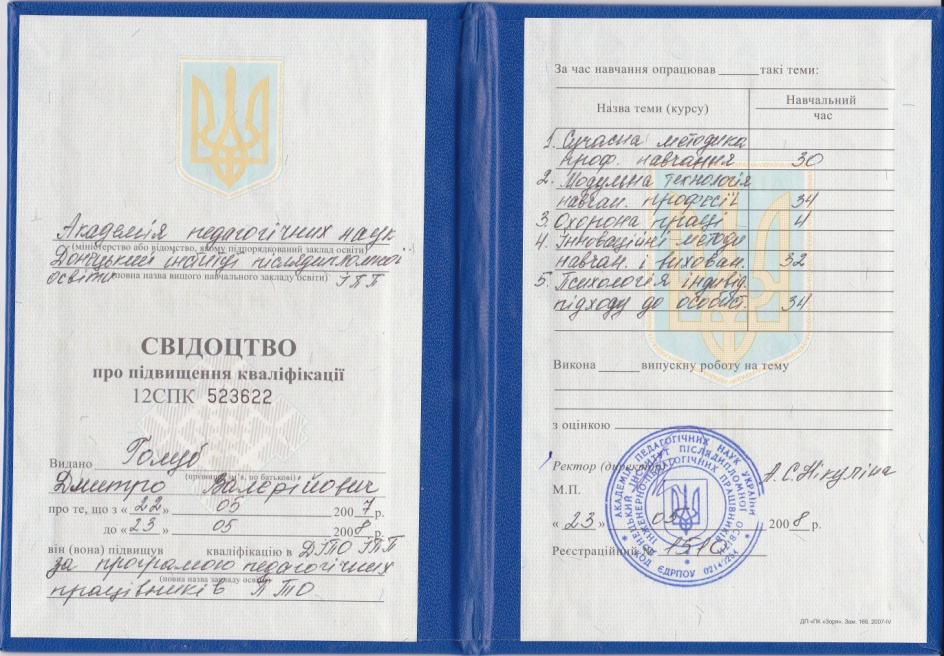 Академія педагогічних наук
(міністерство або відомство, якому підпорядкований заклад освіти)
Донецький інститут післядипломної
освіти ІПП
(повна назва вищого навчального закладу освіти)
СВІДОЦТВО
про підвищення кваліфікації
12СПК 523622
Видано Голуб
(прізвище, ім'я, по батькові)
Дмитро Валерійович
про те, що з « 22 » 05 2007 р.
до « 23 » 05 2008 р.
він (вона) підвищув кваліфікацію в ДІПО ІПП
за програмою педагогічних
(повна назва закладу освіти)
працівників ПТО
За час навчання опрацював ______ такі теми:
Назва теми (курсу) Навчальний
час
1. Сучасна методика
проф. навчання 30
2. Модульна технологія
навчан. професії 34
3. Охорона праці 4
4. Інноваційні методи
навчан. і вихован. 32
5. Психологія індивід.
підходу до особист. 34
Викона ______ випускну роботу на тему
з оцінкою
Ректор (директор) А.С.Нікуліна
М.П.
« 23 » 05 2008 р.
Реєстраційний №
АКАДЕМІЯ ПЕДАГОГІЧНИХ НАУК УКРАЇНИ
ДОНЕЦЬКИЙ ІНСТИТУТ ПІСЛЯДИПЛОМНОЇ ОСВІТИ
ІНЖЕНЕРНО-ПЕДАГОГІЧНИХ ПРАЦІВНИКІВ
КОД ЄДРПОУ
ДП «ПК «Зоря». Зам. 166. 2007-IV